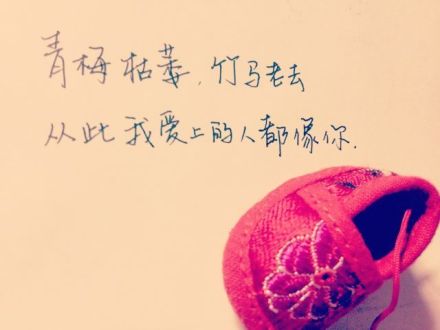 青梅枯萎,竹马老去
从此我爱上的人都像你.